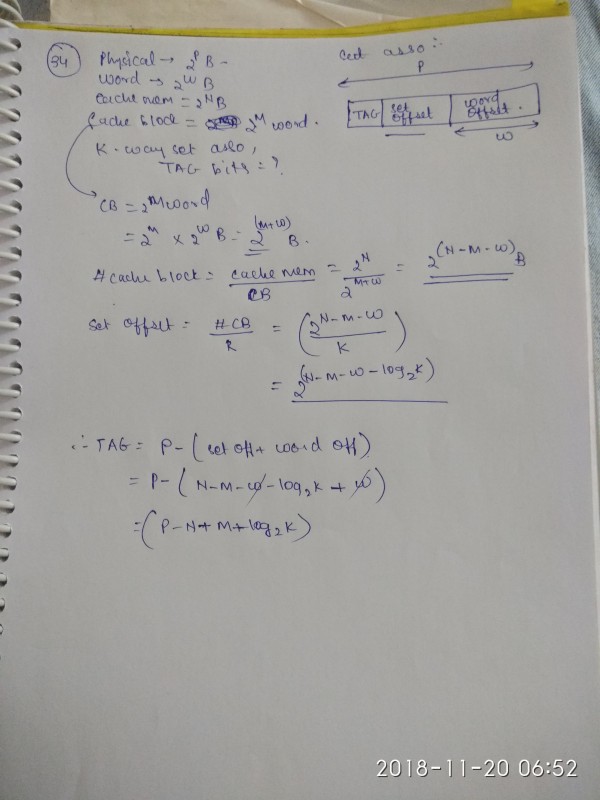 34
Physical → 2^P B -
word → 2^W B
Cache mem = 2^N B
Cache block = 2^M word.
K-way set asso,
TAG bits = ?
Set asso :-
P
TAG | set offset | word offset.
W
CB = 2^M word
= 2^M × 2^W B = 2^(M+W) B.
# cache block = cache mem / CB = 2^N / 2^(M+W) = 2^(N-M-W) B
Set offset = #CB / K = (2^(N-M-W) / K)
= 2^(N-M-W-log₂K)
∴ TAG = P-(set off + word off)
= P-(N-M-W-log₂K + W)
= (P-N+M+log₂K)
2018-11-20 06:52